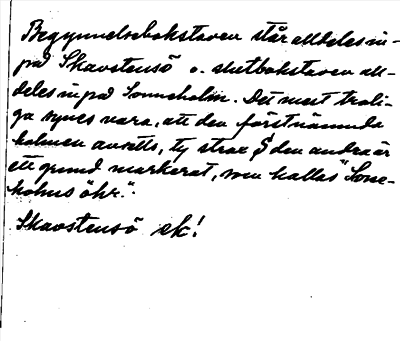 Begynnelsebokstaven står alldeles in-
på Skavstensö o. slutbokstaven all-
deles in på Sonneholm. Det mest troli-
ga synes vara, att den förstnämnda
holmen avsetts, ty strax S den andra är
ett grund markerat, som kallas "Sonne-
holms öhr."
Skavstensö ek!